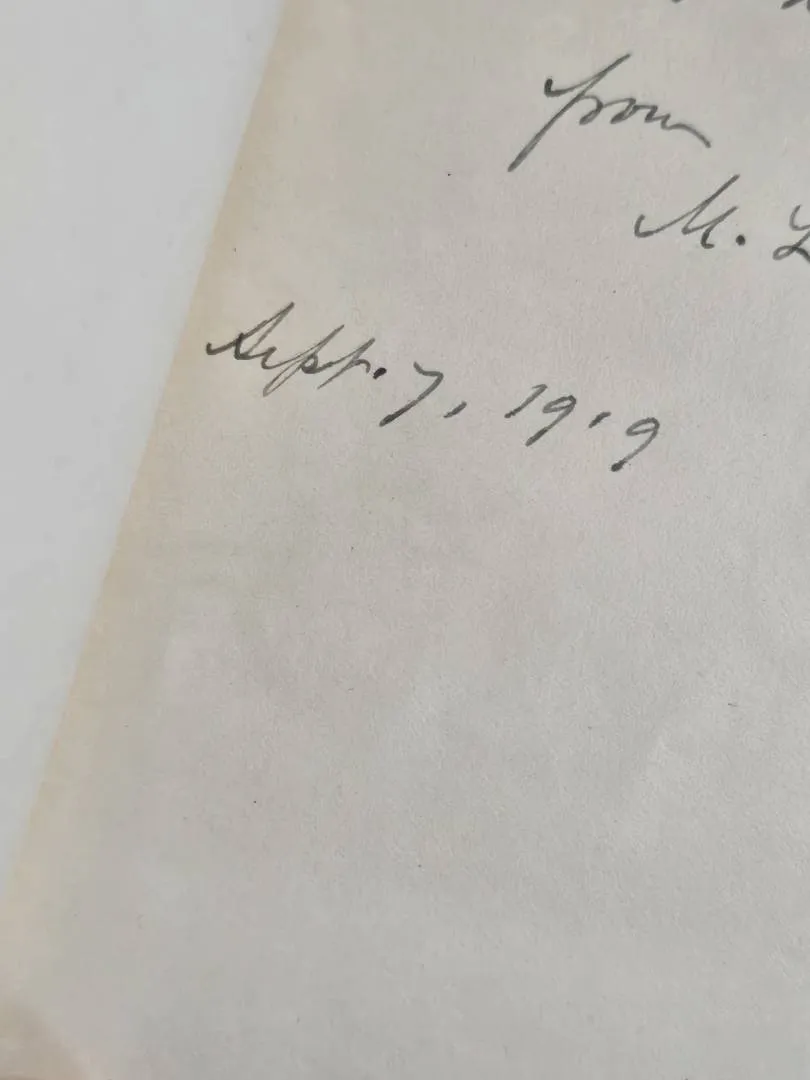 from
M. L
Sept. 7, 1919